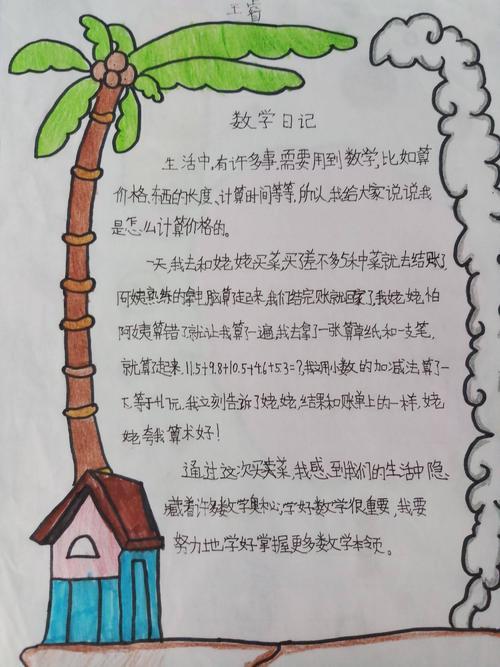 王睿
数学日记
生活中,有许多事,需要用到数学,比如算
价格、东西的长度、计算时间等等,所以,我给大家说说我
是怎么计算价格的。
一天,我去和姥姥买菜,买差不多5种菜就去结账了,
阿姨熟练的拿电脑算起来,我们结完账就回家了,我姥姥怕
阿姨算错了就让我算了一遍,我去拿了一张算草纸和一支笔,
就算了起来,11.5+9.8+10.5+4.6+5.3=?,我用小数的加减法算了一
下,等于41.7元,我立刻告诉了姥姥,结果和账单上的一样,姥
姥夸我算术好!
通过这次买卖菜,我感到我们的生活中隐
藏着许多数学奥秘,学好数学很重要,我要
努力地学好掌握更多数学本领。